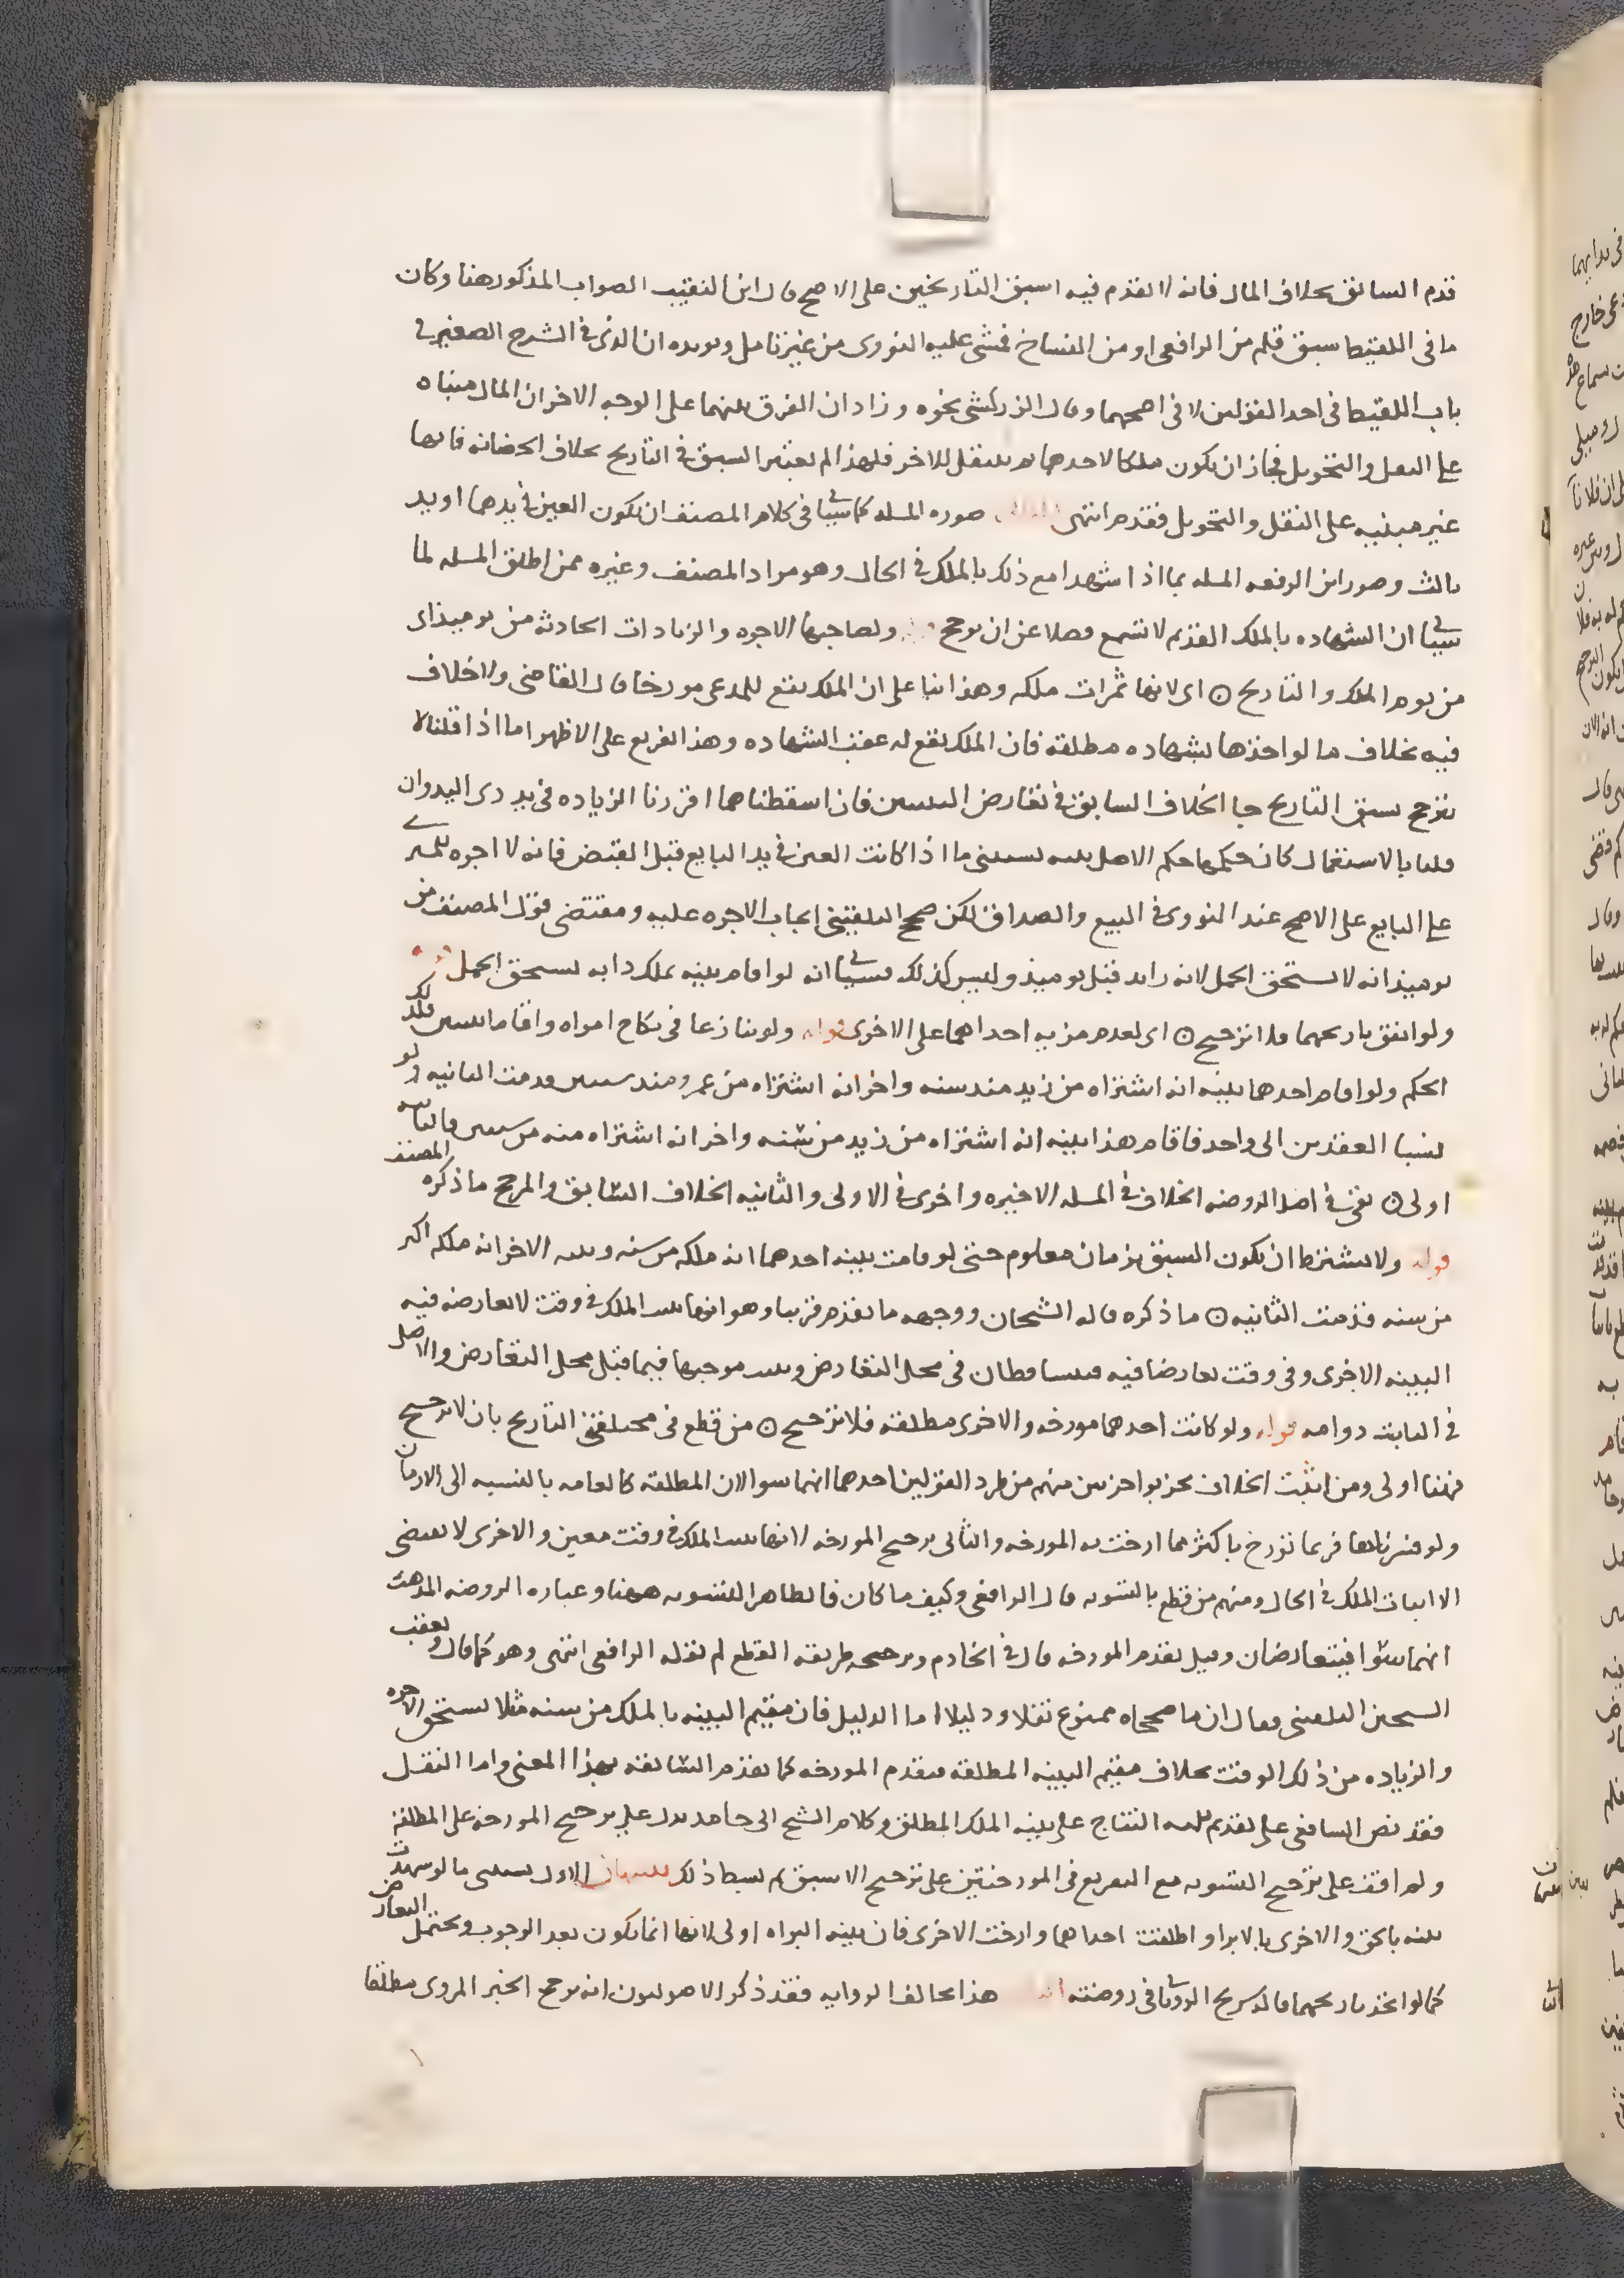 قدم السابق بخلاف المال فانه لا تقدم فيه اسبق التاريخين على الاصح قال ابن النقيب الصواب المذكور هنا وكان
ما في اللقيط سبق قلم من الرافعي او من النساخ فمشى عليه النووي من غير تامل ويويده ان الذي في الشرح الصغير في
باب اللقيط في احد القولين لا في اصحهما وقال الزركشي نحوه وزاد ان الفرق بينهما على الوجه الاخر ان المال مبناه
على النقل والتحويل فجاز ان يكون ملكا لاحدهما ثم ينتقل للاخر فلهذا لم يعتبر السبق في التاريخ بخلاف الحضانه فانها
غير مبنيه على النقل والتحويل فقدم انتهى صوره المسله كما سياتي في كلام المصنف ان تكون العين في يدهما او يد
ثالث وصور ابن الرفعه المسله بما اذا شهدا مع ذلك بالملك في الحال وهو مراد المصنف وغيره ممن اطلق المسله لما
سياتي ان الشهاده بالملك القديم لا تسمع فضلا عن ان ترجح ولصاحبها الاجره والزيادات الحادثه من يوميذ اي
من يوم الملك والتاريخ ۞ اي لانها ثمرات ملكه وهذا بنا على ان الملك يقع للمدعي مورخا قال القاضي ولا خلاف
فيه بخلاف ما لو اخذها بشهاده مطلقه فان الملك يقع له عقب الشهاده وهذا تفريع على الاظهر اما اذا قلنا لا
ترجح بسبق التاريخ جا الخلاف السابق في تعارض البينتين فان اسقطناهما اقررنا الزياده في يد ذي اليد وان
قلنا بالاستعمال كان حكمها حكم الاصل تنبيه يستثنى ما اذا كانت العين في يد البايع قبل القبض فانه لا اجره للمشتري
على البايع على الاصح عند النووي في البيع والصداق لكن صحح البلقيني ايجاب الاجره عليه ومقتضى قول المصنف من
يوميذ انه لا يستحق الحمل لانه زايد قبل يوميذ وليس كذلك فسياتي انه لو اقام بينه بملك دابه يستحق الحمل قوله
ولو اتفق تاريخهما فلا ترجيح ۞ اي لعدم مزيه احداهما على الاخرى قوله ولو تنازعا في نكاح امراه واقاما بينتين فكذلك
الحكم ولو اقام احدهما بينه انه اشتراه من زيد منذ سنه واخر انه اشتراه من عمرو منذ سنتين قدمت الثانيه ولو
نسبا العقدين الى واحد فاقام هذا بينه انه اشتراه من زيد من سنه واخر انه اشتراه منه من سنتين فالثانيه
اولى ۞ نفى في اصل الروضه الخلاف في المسله الاخيره واجرى في الاولى والثانيه الخلاف السابق والمرجح ما ذكره المصنف
قوله ولا يشترط ان يكون السبق بزمان معلوم حتى لو قامت بينه احدهما انه ملكه من سنه وبينه الاخر انه ملكه اكثر
من سنه قدمت الثانيه ۞ ما ذكره قاله الشيخان ووجهه ما تقدم قريبا وهو انها تثبت الملك في وقت لا تعارضه فيه
البينه الاخرى وفي وقت تعارضا فيه فيتساقطان في محل التعارض ويثبت موجبها فيما قبل محل التعارض والاصل
في الثابت دوامه قوله ولو كانت احدهما مورخه والاخرى مطلقه فلا ترجيح ۞ من قطع في مختلفتي التاريخ بان لا ترجيح
فهنا اولى ومن اثبت الخلاف تحزبوا حزبين منهم من طرد القولين احدهما انهما سوا لان المطلقه كالعامه بالنسبه الى الازمان
ولو فسرناها فربما تورخ باكثر مما ارخت به المورخه والثاني ترجح المورخه لانها تثبت الملك في وقت معين والاخرى لا تقتضي
الا اثبات الملك في الحال ومنهم من قطع بالتسويه قال الرافعي وكيف ما كان فالظاهر التسويه ههنا وعباره الروضه المذهب
انهما سوا فيتعارضان وقيل تقدم المورخه قال في الخادم وترجيحه طريقه القطع لم ينقله الرافعي انتهى وهو كما قال وتعقب
الشيخين البلقيني فقال ان ما صححاه ممنوع نقلا ودليلا اما الدليل فان مقيم البينه بالملك من سنه مثلا يستحق الاجره
والزياده من ذلك الوقت بخلاف مقيم البينه المطلقه فتقدم المورخه كما تقدم السابقه بهذا المعنى واما النقل
فقد نص الشافعي على تقديم بينه النتاج على بينه الملك المطلق وكلام الشيخ ابي حامد يدل على ترجيح المورخه على المطلقه
ولم اقف على ترجيح التسويه مع التفريع في المورختين على ترجيح الاسبق ثم بسط ذلك تنبيهان الاول يستثنى ما لو شهدت
بينه بالحق والاخرى بالابرا واطلقت احداهما وارخت الاخرى فان بينه البراه اولى لانها انما تكون بعد الوجوب ويحتمل التعارض
كما لو اتحد تاريخهما قاله شريح الروياني في روضته هذا يخالف الروايه فقد ذكر الاصوليون انه يرجح الخبر المروي مطلقا